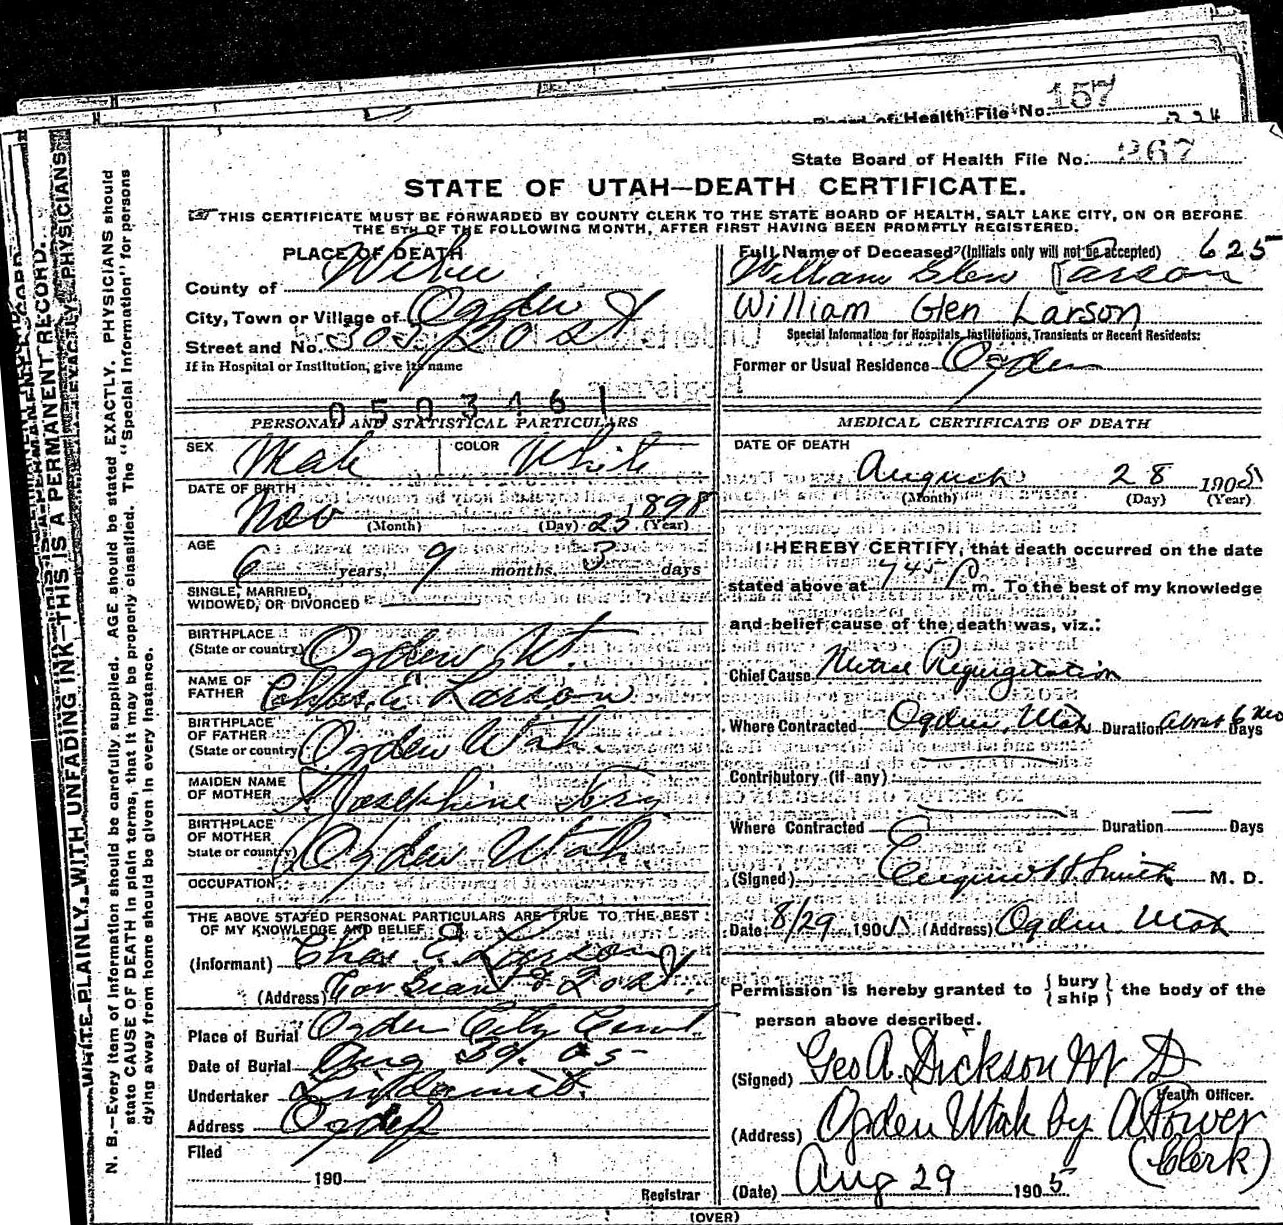 Board of Health File No. 157
State Board of Health File No. 267
STATE OF UTAH—DEATH CERTIFICATE.
THIS CERTIFICATE MUST BE FORWARDED BY COUNTY CLERK TO THE STATE BOARD OF HEALTH, SALT LAKE CITY, ON OR BEFORE
THE 5TH OF THE FOLLOWING MONTH, AFTER FIRST HAVING BEEN PROMPTLY REGISTERED.
WRITE PLAINLY, WITH UNFADING INK—THIS IS A PERMANENT RECORD.
N. B.—Every item of information should be carefully supplied. AGE should be stated EXACTLY. PHYSICIANS should
state CAUSE OF DEATH in plain terms, that it may be properly classified. The "Special Information" for persons
dying away from home should be given in every instance.
PLACE OF DEATH
County of Weber
City, Town or Village of Ogden
Street and No. 303 20 St
If in Hospital or Institution, give its name
0503461
PERSONAL AND STATISTICAL PARTICULARS
SEX Male COLOR White
DATE OF BIRTH
Nov (Month) (Day) 25 1898 (Year)
AGE
6 years, 9 months, 3 days
SINGLE, MARRIED,
WIDOWED, OR DIVORCED
BIRTHPLACE
(State or country) Ogden Ut.
NAME OF
FATHER Chas. E Larson
BIRTHPLACE
OF FATHER
(State or country) Ogden Utah
MAIDEN NAME
OF MOTHER Josephine
BIRTHPLACE
OF MOTHER
State or country) Ogden Utah
OCCUPATION
THE ABOVE STATED PERSONAL PARTICULARS ARE TRUE TO THE BEST
OF MY KNOWLEDGE AND BELIEF
(Informant) Chas. E. Larson
(Address) Cor & 20 St.
Place of Burial Ogden City Cem
Date of Burial Aug 05
Undertaker Lindquist
Address Ogden
Filed
190
Registrar
Full Name of Deceased (Initials only will not be accepted) 625
William Glen Larson
William Glen Larson
Special Information for Hospitals, Institutions, Transients or Recent Residents:
Former or Usual Residence Ogden
MEDICAL CERTIFICATE OF DEATH
DATE OF DEATH
August 28 1905
(Month) (Day) (Year)
I HEREBY CERTIFY, that death occurred on the date
stated above at 745 P m. To the best of my knowledge
and belief cause of the death was, viz.:
Chief Cause Mitral Regurgitation
Where Contracted Ogden, Utah Duration About 6 Mo Days
Contributory (if any)
Where Contracted Duration Days
(Signed) Eugene H Smith M. D.
Date 8/29 1905 (Address) Ogden Utah
Permission is hereby granted to {bury
ship} the body of the
person above described.
(Signed) Geo A. Dickson M D
Health Officer.
(Address) Ogden Utah by A Tower
(Clerk)
(Date) Aug 29 1905.
(OVER)